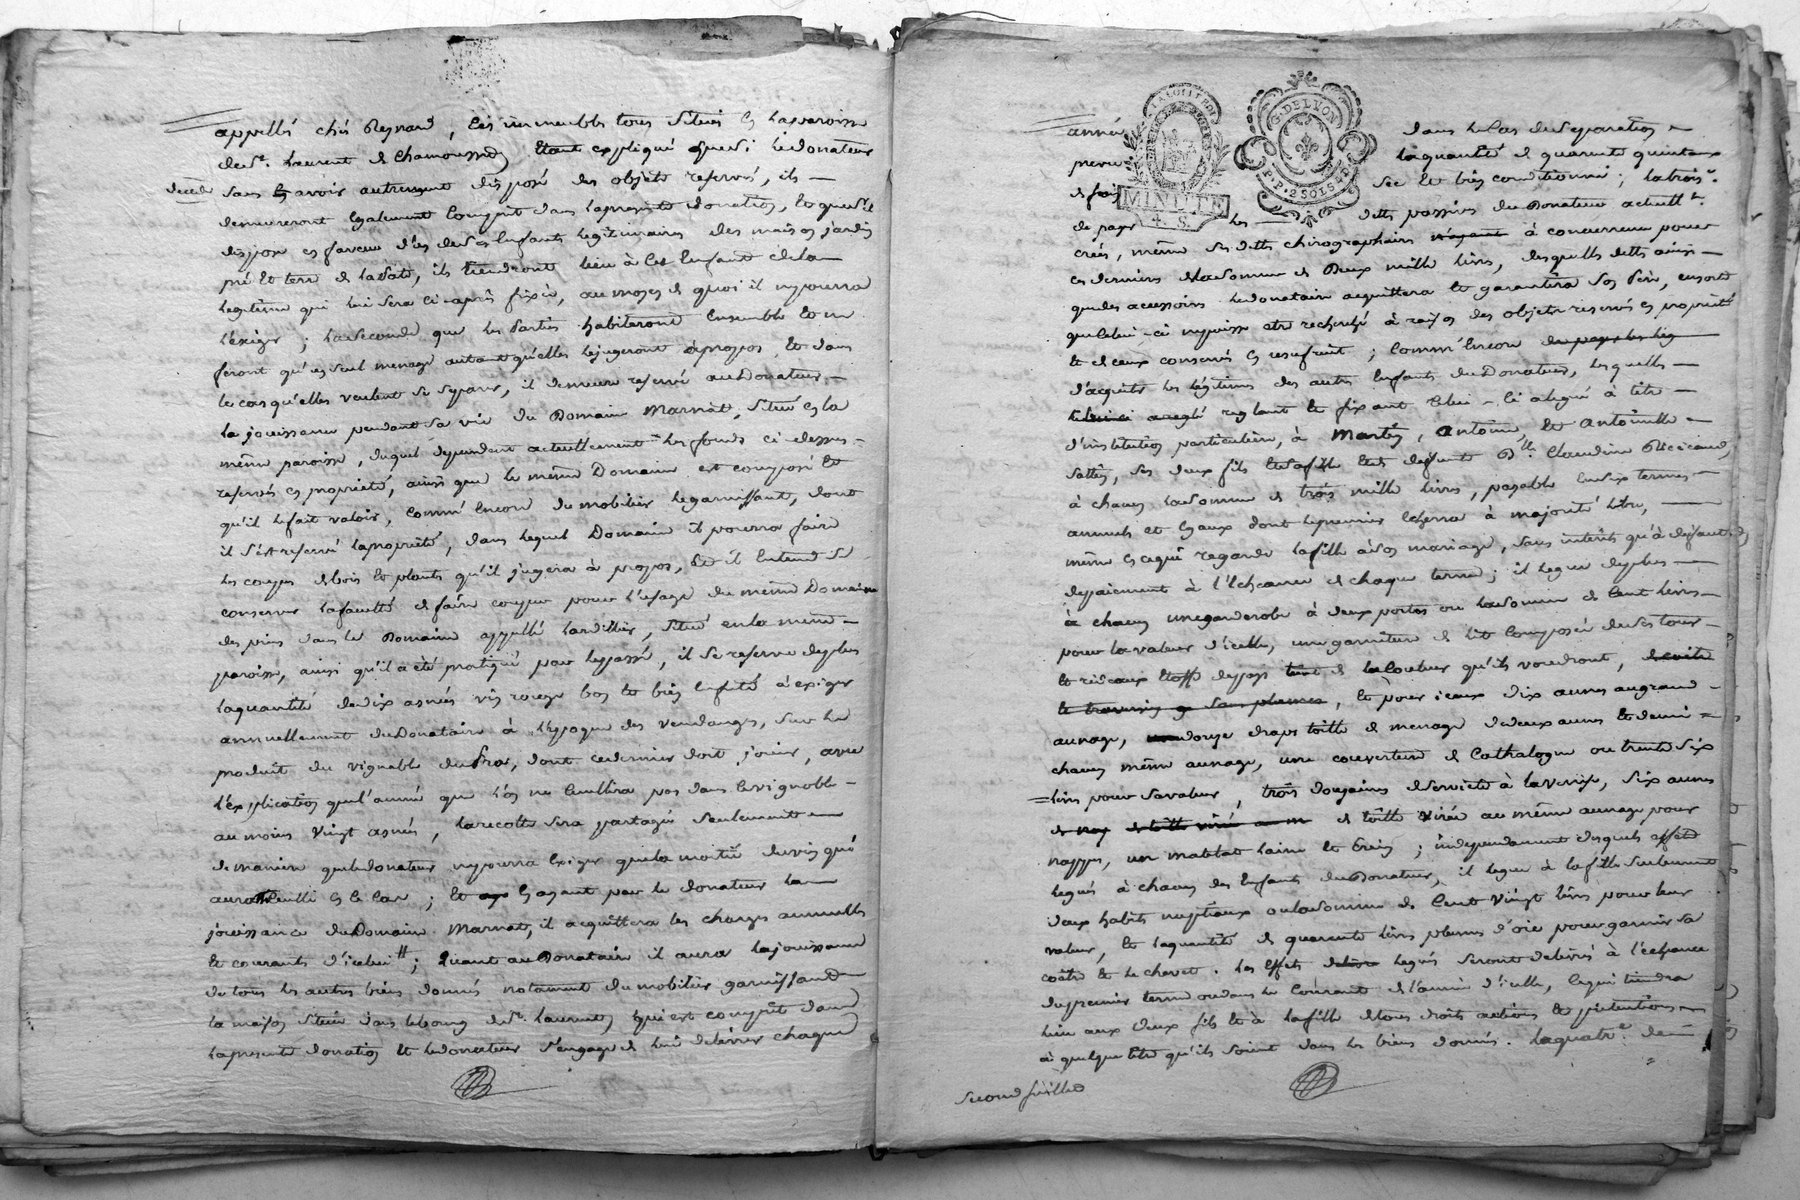 appellé chés Reynard, les immeubles tous situés en la paroisse
de St. Laurent de Chamousset, étant expliqué que si le donateur
décede sans en avoir autrement disposé des objets reservés, ils
demeureront également compris dans la presente donation,
dispose en faveur d'un de ses enfants legitimaires des maison jardin
pré et terre de la , ils tiendront lieu à cet enfant de la
legitime qui lui sera ci-après fixée, au moyen de quoi il ne pourra
l'exiger ; la seconde que les parties habiteront ensemble et ne
feront qu'un seul menage autant qu'elles le jugeront àpropos, et dans
le cas qu'elles veulent se separer, il demeure reservé au donateur
la jouissance pendant sa vie du Domaine Marnat, situé en la
même paroisse, duquel dependent actuellement les fonds ci-dessus
reservés en propriété, ainsi que le même Domaine est composé et
qu'il le fait valoir, comm'encore du mobilier le garnissant, dont
il s'est reservé la propriété, dans lequel Domaine il pourra faire
les coupes de bois et plants qu'il jugera à propos, et il entend se
conserver la faculté de faire couper pour l'usage du même Domaine
des pins dans le Domaine appellé , situé en la meme
paroisse, ainsi qu'il a été pratiqué par le passé, il se reserve de plus
la quantité de dix asnées vin rouge bon et bien à exiger
annuellement du Donataire à l'epoque des vendanges, sur le
produit du vignoble , dont ce dernier doit jouir, avec
l'explication que l'année que l'on ne cueillira pas dans le vignoble
au moins vingt asnées, la recolte sera partagée seulement
de maniere que le donateur ne pourra exiger que la moitié du vin qui
aura cueilli en ce cas ; et en ayant par le donateur la
jouissance du Domaine Marnat, il acquittera les charges annuelles
et courants d'icelui ; quant au Donataire il aura la jouissance
de tous les autres biens donnés notament du mobilier garnissant
la maison située dans le bourg de St. Laurent, qui est compris dans
la presente donation et le donateur s'engage de lui delivrer chaque
année dans le cas de separation
la quantité de quarente quintaux
de foin sec et bien conditionné ; la trois.e
de payer les dettes passives du Donateur actuellt.
créés, même ses dettes chirographaires à concurrence pour
ces derniers de la somme de Deux mille livres, desquelles dettes ainsi
que des accessoires le donataire acquittera et garantira son père, ensorte
que celui-ci ne puisse etre recherché à raison des objets reservés en propriété
et de ceux conservés en usufruit ; comm'encore
d'acquitter les légitimes des autres enfants du Donateur, lesquelles
reglant et fixant celui-ci a legué à titre
d'institution particulière, à Martin, Antoine, et Antoinette
, ses deux fils et sa fille et de deffunte Dlle. Claudine ,
à chacun la somme de trois mille livres, payable en six termes
annuels et egaux dont le premier echerra à majorité
même en ce qui regarde la fille à son mariage, sans intérêts qu'à deffaut de
depaiement à l'échéance de chaque terme ; il legue de plus
à chacun une garderobe à deux portes ou la somme de cent livres
pour la valeur d'icelle, une garniture de lit composée de ses tour
et rideaux etoffe du pays de la couleur qu'ils voudront, de coitre
et traversin , et pour iceux dix aunes au grand
aunage, douze draps toille de menage de deux aunes et demi
chacun même aunage, une couverture de Cathalogne ou trente six
livres pour sa valeur, trois douzaines de serviette à la Venise, six aunes
de toille au même aunage pour
nappes, un matelat laine et crin ; independament desquels effets
legués à chacun des enfants du Donateur, il legue à la fille seulement
deux habits nuptiaux ou la somme de cent vingt livres pour leur
valeur, et la quantité de quarente livres plumes d'oie pour garnir sa
coitre et le chevet. Les effets legués seront delivrés à l'echeance
du premier terme ou dans le courant de l'année d'icelle, ce qui tiendra
lieu aux deux fils et à la fille de tous droits actions et pretentions
à quelque titre qu'ils soient dans les biens donnés. La quatr.e
second feuillet
LA LOI ET ROI
MINUTE
4. S.
G. DELYON
P.P. 2 SOLS 4 D.